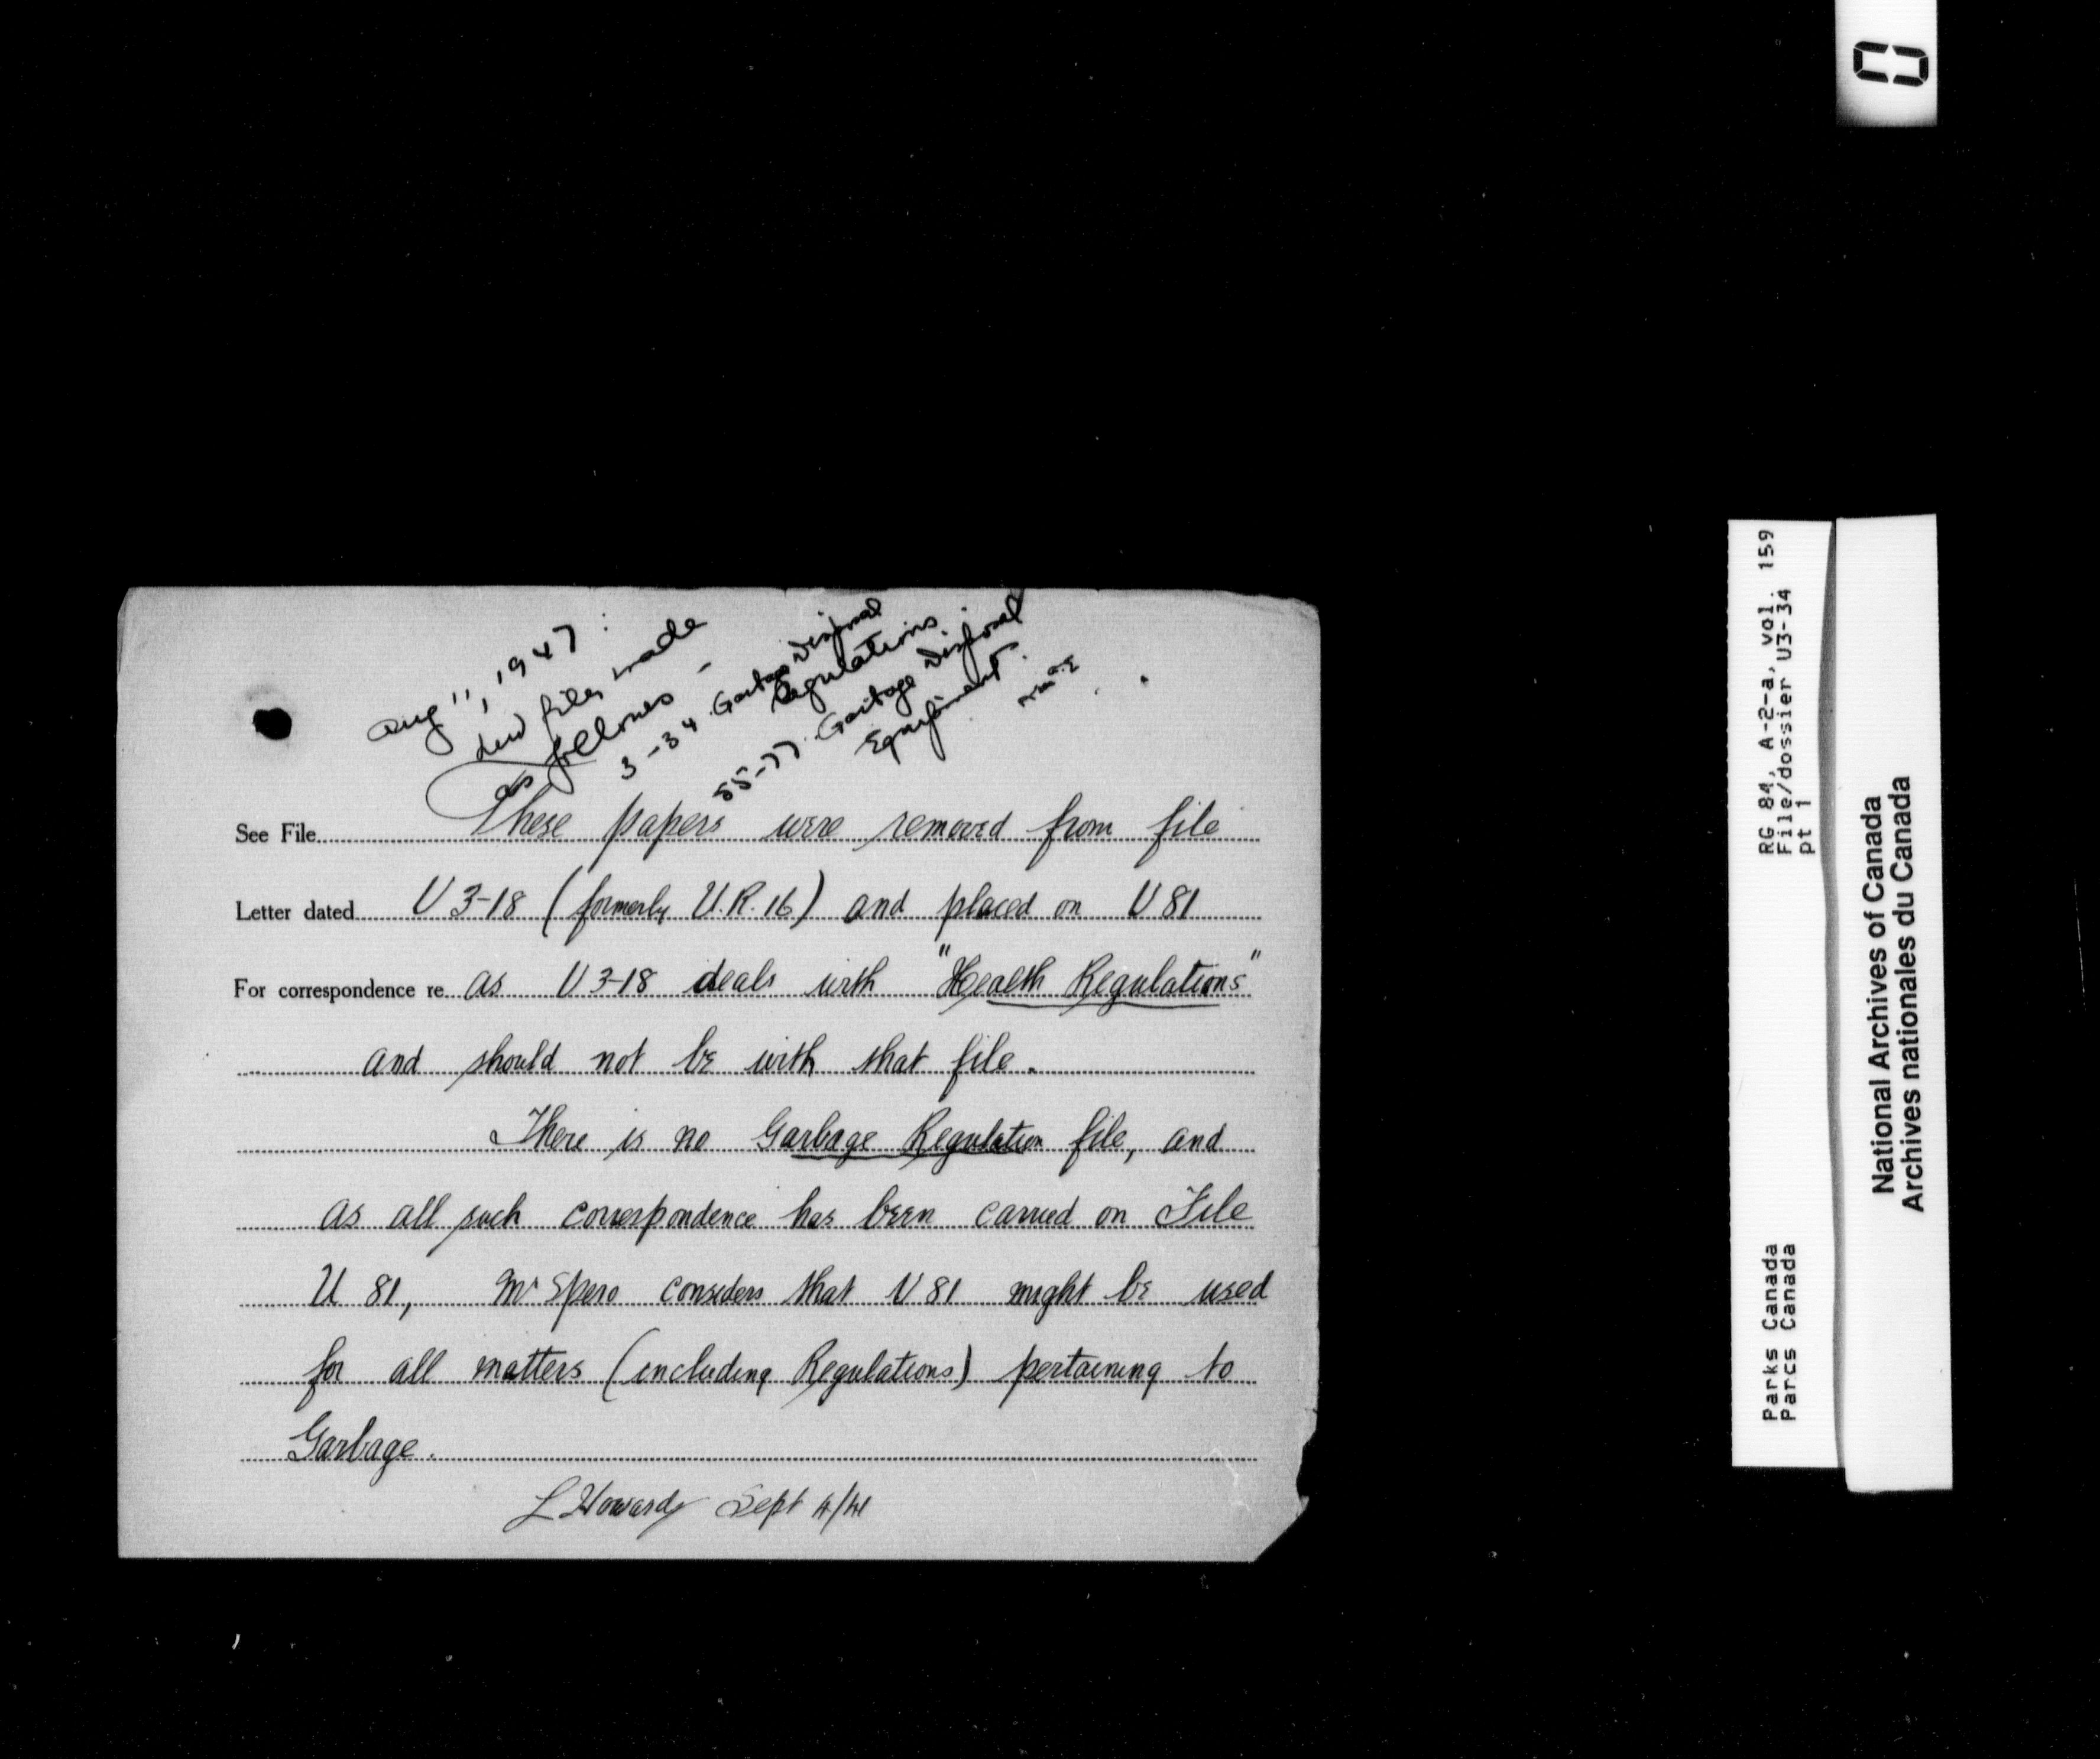 Aug 11, 1947:
New files made
as follows -
3-34 Garbage Disposal
Regulations.
55-77. Garbage Disposal
Equipment.
See File These papers were removed from file
Letter dated U 3-18 (formerly U.R. 16) and placed on U 81
For correspondence re as U 3-18 deals with "Health Regulations"
and should not be with that file.
There is no Garbage Regulation file, and
as all such correspondence has been carried on File
U 81, Mr Spero considers that U 81 might be used
for all matters (including Regulations) pertaining to
Garbage.
L Howard Sept 4/41
RG 84, A-2-a, vol. 159
File/dossier U3-34
pt 1
Parks Canada
Parcs Canada
National Archives of Canada
Archives nationales du Canada